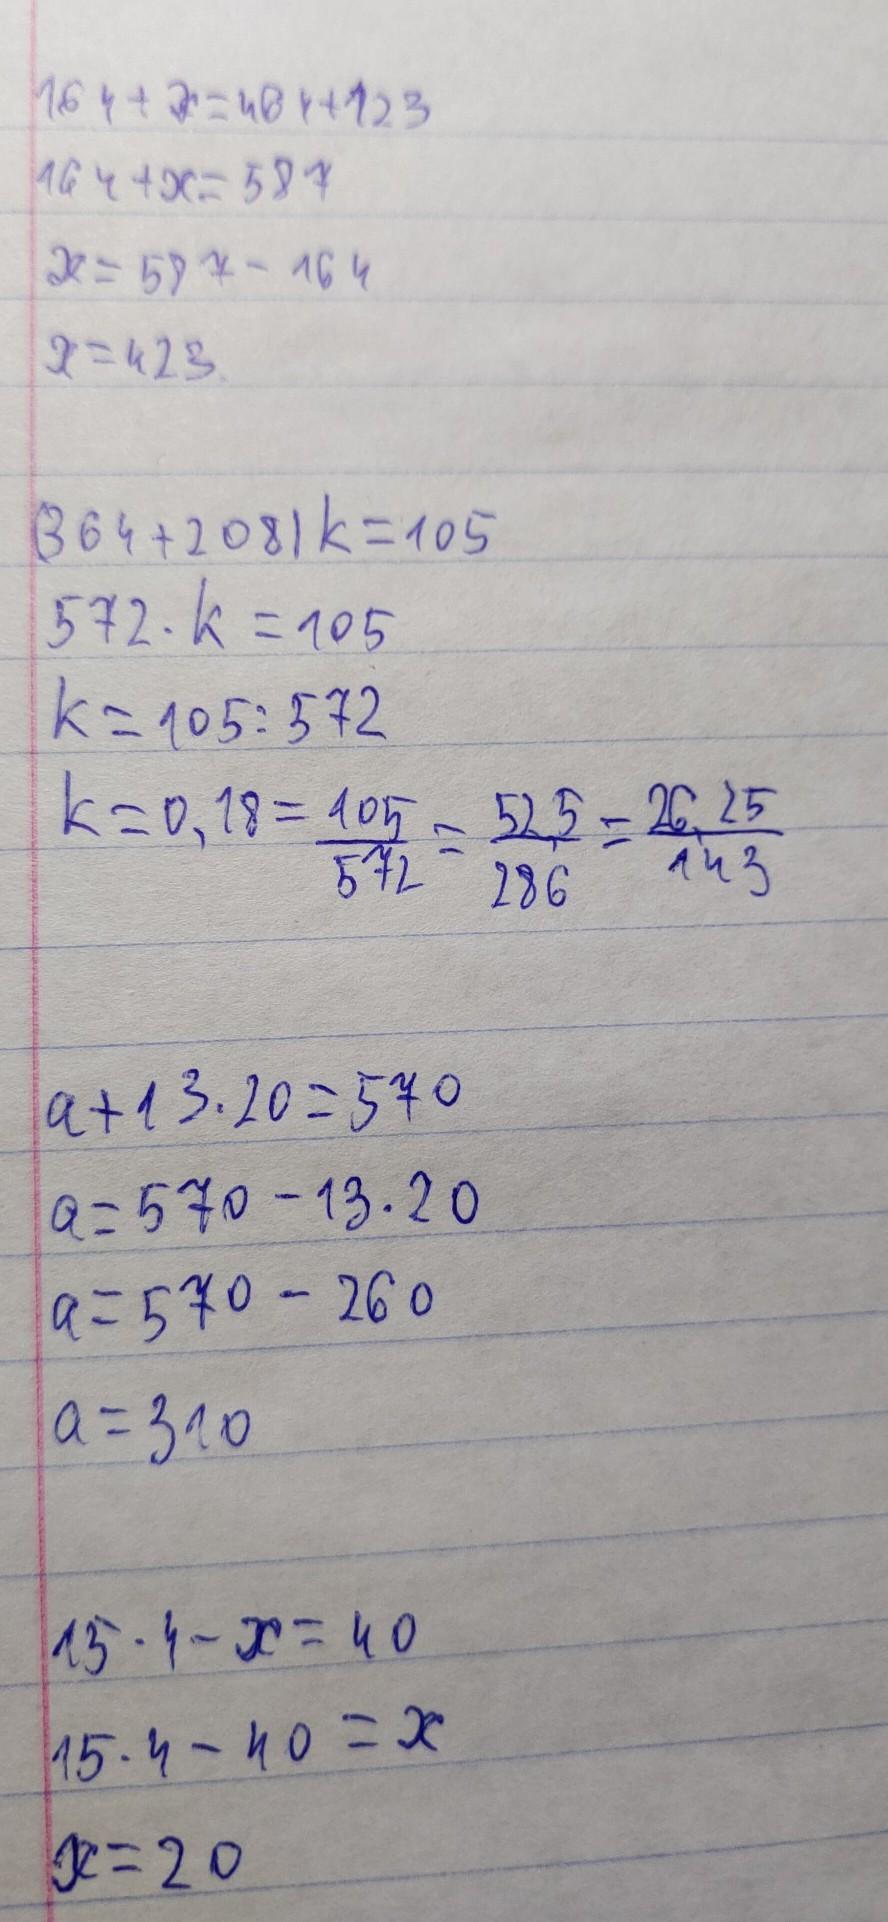 164+x=464+123
164+x=587
x=587-164
x=423.
(364+208)k=105
572·k=105
k=105:572
k=0,18=105/572=52,5/286=26,25/143
a+13·20=570
a=570-13·20
a=570-260
a=310
15·4-x=40
15·4-40=x
x=20